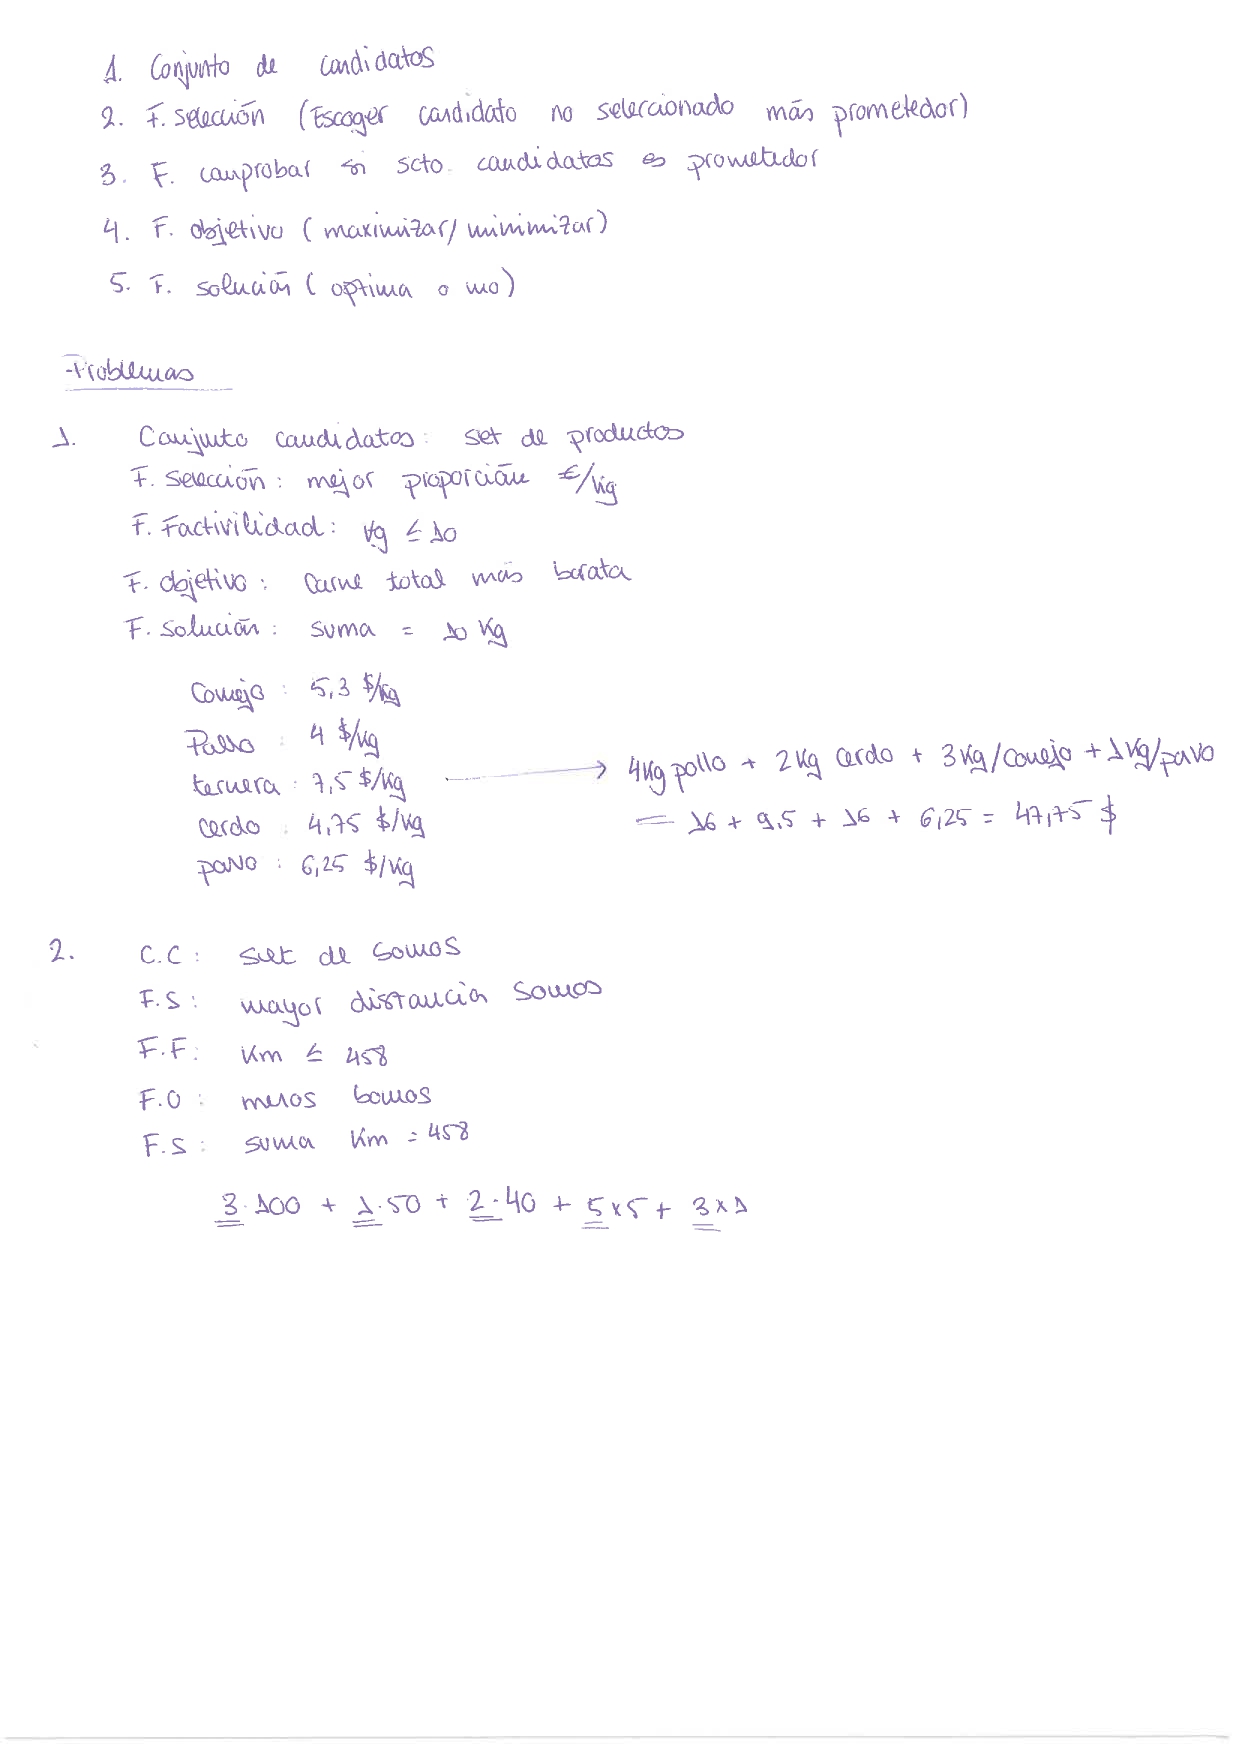 1. Conjunto de candidatos
2. F. selección (Escoger candidato no selecionado más prometedor)
3. F. comprobar si scto. candidatos es prometedor
4. F. objetivo (maximizar/minimizar)
5. F. solución (optima o no)
Problemas
1. Conjunto candidatos: set de productos
F. selección: mejor proporción €/kg
F. Factivilidad: kg ≤ 10
F. objetivo: carne total más barata
F. solución: suma = 10 kg
Conejo: 5,3 $/kg
Pollo: 4 $/kg
ternera: 7,5 $/kg → 4kg pollo + 2kg cerdo + 3kg/conejo + 1kg/pavo
cerdo: 4,75 $/kg = 16 + 9,5 + 16 + 6,25 = 47,75 $
pavo: 6,25 $/kg
2. C.C: set de bonos
F.S: mayor distancia bonos
F.F: km ≤ 458
F.O: menos bonos
F.S: suma km = 458
3·100 + 1·50 + 2·40 + 5x5 + 3x1